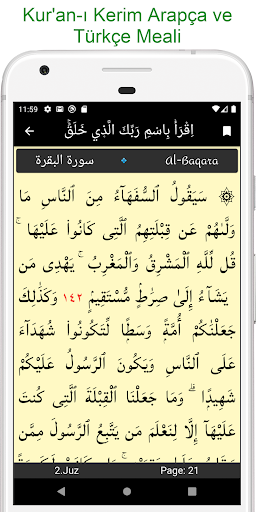 Kur'an-ı Kerim Arapça ve
Türkçe Meali
11:59
اِقْرَأْ بِاسْمِ رَبِّكَ الَّذِي خَلَقَ
سورة البقرة Al-Baqara
۞ سَيَقُولُ ٱلسُّفَهَآءُ مِنَ ٱلنَّاسِ مَا
وَلَّىٰهُمْ عَن قِبْلَتِهِمُ ٱلَّتِى كَانُوا۟ عَلَيْهَا ۚ
قُل لِّلَّهِ ٱلْمَشْرِقُ وَٱلْمَغْرِبُ ۚ يَهْدِى مَن
يَشَآءُ إِلَىٰ صِرَٰطٍ مُّسْتَقِيمٍ ١٤٢ وَكَذَٰلِكَ
جَعَلْنَٰكُمْ أُمَّةً وَسَطًا لِّتَكُونُوا۟ شُهَدَآءَ
عَلَى ٱلنَّاسِ وَيَكُونَ ٱلرَّسُولُ عَلَيْكُمْ
شَهِيدًا ۗ وَمَا جَعَلْنَا ٱلْقِبْلَةَ ٱلَّتِى كُنتَ
عَلَيْهَآ إِلَّا لِنَعْلَمَ مَن يَتَّبِعُ ٱلرَّسُولَ مِمَّن
2.Juz Page: 21